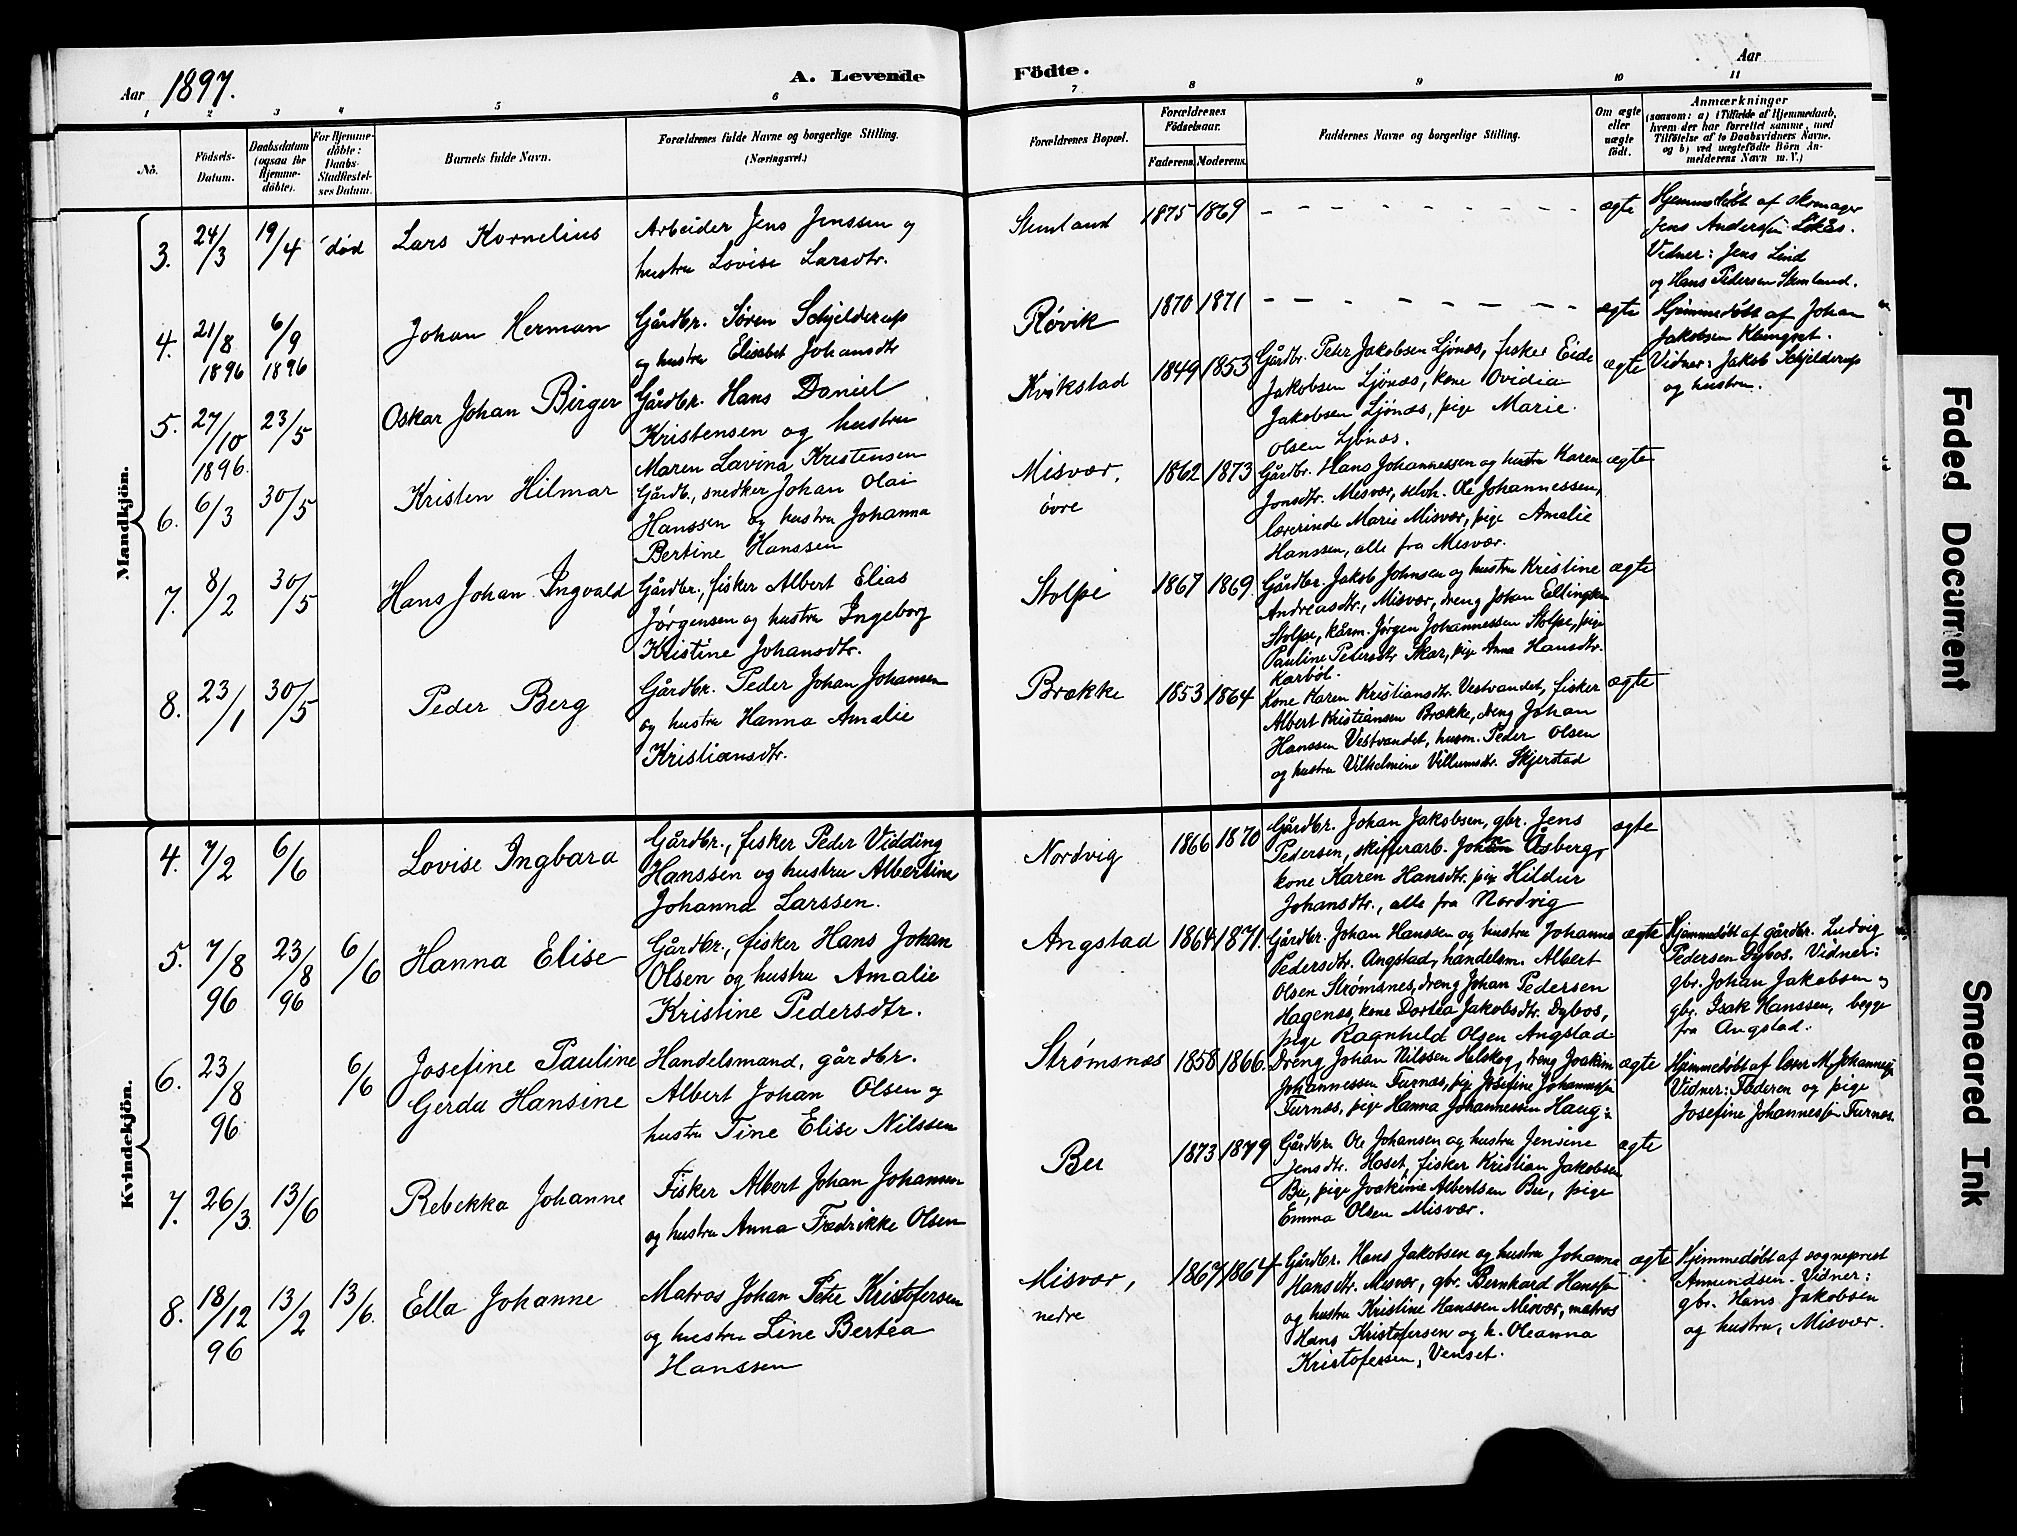 Aar 1897.
A. Levende
Födte.
Aar
1 2 3 4 5 6 7 8 9 10 11
No.
Födsels-
Datum.
Daabsdatum
(ogsaa for
Hjemme-
döbte).
For Hjemme-
döbte:
Daabs-
Stadfæstel-
ses Datum.
Barnets fulde Navn.
Forældrenes fulde Navne og borgerlige Stilling.
(Næringsvei.)
Forældrenes Bopæl.
Forældrenes
Födselsaar.
Faderens. Moderens.
Faddernes Navne og borgerlige Stilling.
Om ægte
eller
uægte
födt.
Anmærkninger
(saasom: a) i Tilfælde af Hjemmedaab,
hvem der har forrettet samme, med
Tilföielse af to Daabsvidners Navne,
og b) ved uægtefödte Börn An-
melderens Navn m. V.)
Mandkjön.
3. 24/3 19/4 død Lars Kornelius
Arbeider Jens Jenssen og
hustru Lovise Larsdtr.
Stemland 1875 1869 - - - - - - - - ægte
Hjemmedøbt af skomager
Jens Anderssen Løkås.
Vidner: Jens Lind
og Hans Pedersen Stemland.
4. 21/8 1896 6/9 1896 Johan Herman
Gårdbr. Søren Schjelderup
og hustru Elisabet Johansdtr
Røvik 1870 1871 - - - - - - - - ægte
Hjemmedøbt af Johan
Jakobsen Klunget.
Vidner: Jakob Schjelderup
og hustru.
5. 27/10 1896. 23/5 Oskar Johan Birger
Gårdbr. Hans Daniel
Kristensen og hustru
Maren Lavina Kristensen
Kvikstad 1849 1853
Gårdbr. Peter Jakobsen Ljønes, fisker Eide
Jakobsen Ljønæs, kone Ovidia
Jakobsen Ljønæs, pige Marie
Olsen Ljønæs.
ægte
6. 6/3 30/5 Kristen Hilmar
Gårdb., snedker Johan Olai
Hanssen og hustru Johanna
Bertine Hanssen
Misvær,
øvre
1862 1873
Gårdbr. Hans Johannessen og hustru Karen
Jonsdtr. Misvær, selvh. Ole Johannessen,
lærerinde Marie Misvær, pige Amalie
Hanssen, alle fra Misvær.
ægte
7. 8/2 30/5 Hans Johan Ingvald
Gårdbr., fisker Albert Elias
Jørgensen og hustru Ingeborg
Kristine Johansdtr.
Stolpe 1867 1869
Gårdbr. Jakob Johnsen og hustru Kristine
Andreasdtr., Misvær, dreng Johan Ellingsen
Stolpe, kårm. Jørgen Johannessen Stolpe, pige
Pauline Petersdtr. Skar, pige Anna Hansdtr.
Karbøl.
ægte
8. 23/1 30/5 Peder Berg
Gårdbr. Peder Johan Johansen
og hustru Hanna Amalie
Kristiansdtr.
Brække 1853 1864
Kone Karen Kristiansdtr. Vestvandet, fisker
Albert Kristiansen Brække, dreng Johan
Hanssen Vestvandet, husm. Peder Olsen
og hustru Vilhelmine Villumsdtr. Skjerstad
ægte
Kvindekjön.
4. 7/2 6/6 Lovise Ingbara
Gårdbr., fisker Peder Vidding
Hanssen og hustru Albertine
Johanna Larssen.
Nordvig 1866 1870
Gårdbr. Johan Jakobsen, gbr. Jens
Pedersen, skiferarb. Johan Åsberg,
kone Karen Hansdtr. pige Hildur
Johansdtr., alle fra Nordvig
ægte
5. 7/8 96 23/8 96 6/6 Hanna Elise
Gårdbr., fisker Hans Johan
Olsen og hustru Amalie
Kristine Pedersdtr.
Angstad 1864 1871.
Gårdbr. Johan Hanssen og hustru Johanna
Pedersdtr. Angstad, handelsm. Albert
Olsen Strømsnes, dreng Johan Pedersen
Hagenæs, kone Dortea Jakobsdtr. Dybos,
pige Ragnhild Olsen Angstad
ægte
Hjemmedøbt af gårdbr. Ludvig
Pedersen Dybos. Vidner:
gbr. Johan Jakobsen og
gbr. Isak Hanssen, begge
fra Angstad.
6. 23/8 96 6/6 Josefine Pauline
Gerda Hansine
Handelsmand, gårdbr.
Albert Johan Olsen og
hustru Tine Elise Nilssen
Strømsnæs 1858 1866.
Dreng Johan Nilssen Helskog, dreng Joakim
Johannessen Furnæs, pige Josefine Johannessen
Furnæs, pige Hanna Johannessen Haug
ægte
Hjemmedøbt af lærer M. Johannessen
Vidner: Faderen og pige
Josefine Johannessen Furnæs.
7. 26/3. 13/6 Rebekka Johanne
Fisker Albert Johan Johansen
og hustru Anna Fredrikke Olsen
Bu 1873 1879
Gårdbr. Ole Johansen og hustru Jensine
Jensdtr. Hoset, fisker Kristian Jakobsen
Bu, pige Joakime Albertsen Bu, pige
Emma Olsen Misvær.
ægte
8. 18/12 96 13/2 13/6. Ella Johanne
Matros Johan Peter Kristofersen
og hustru Line Bertea
Hanssen
Misvær,
nedre
1867 1864
Gårdbr. Hans Jakobsen og hustru Johanna
Hansdtr. Misvær, gbr. Bernhard Hanssen
og hustru Kristine Hanssen Misvær, matros
Hans Kristofersen og h. Oleanna
Kristofersen, Venset.
ægte
Hjemmedøbt af sogneprest
Amundsen. Vidner:
gbr. Hans Jakobsen
og hustru, Misvær.
Faded Document
Smeared Ink